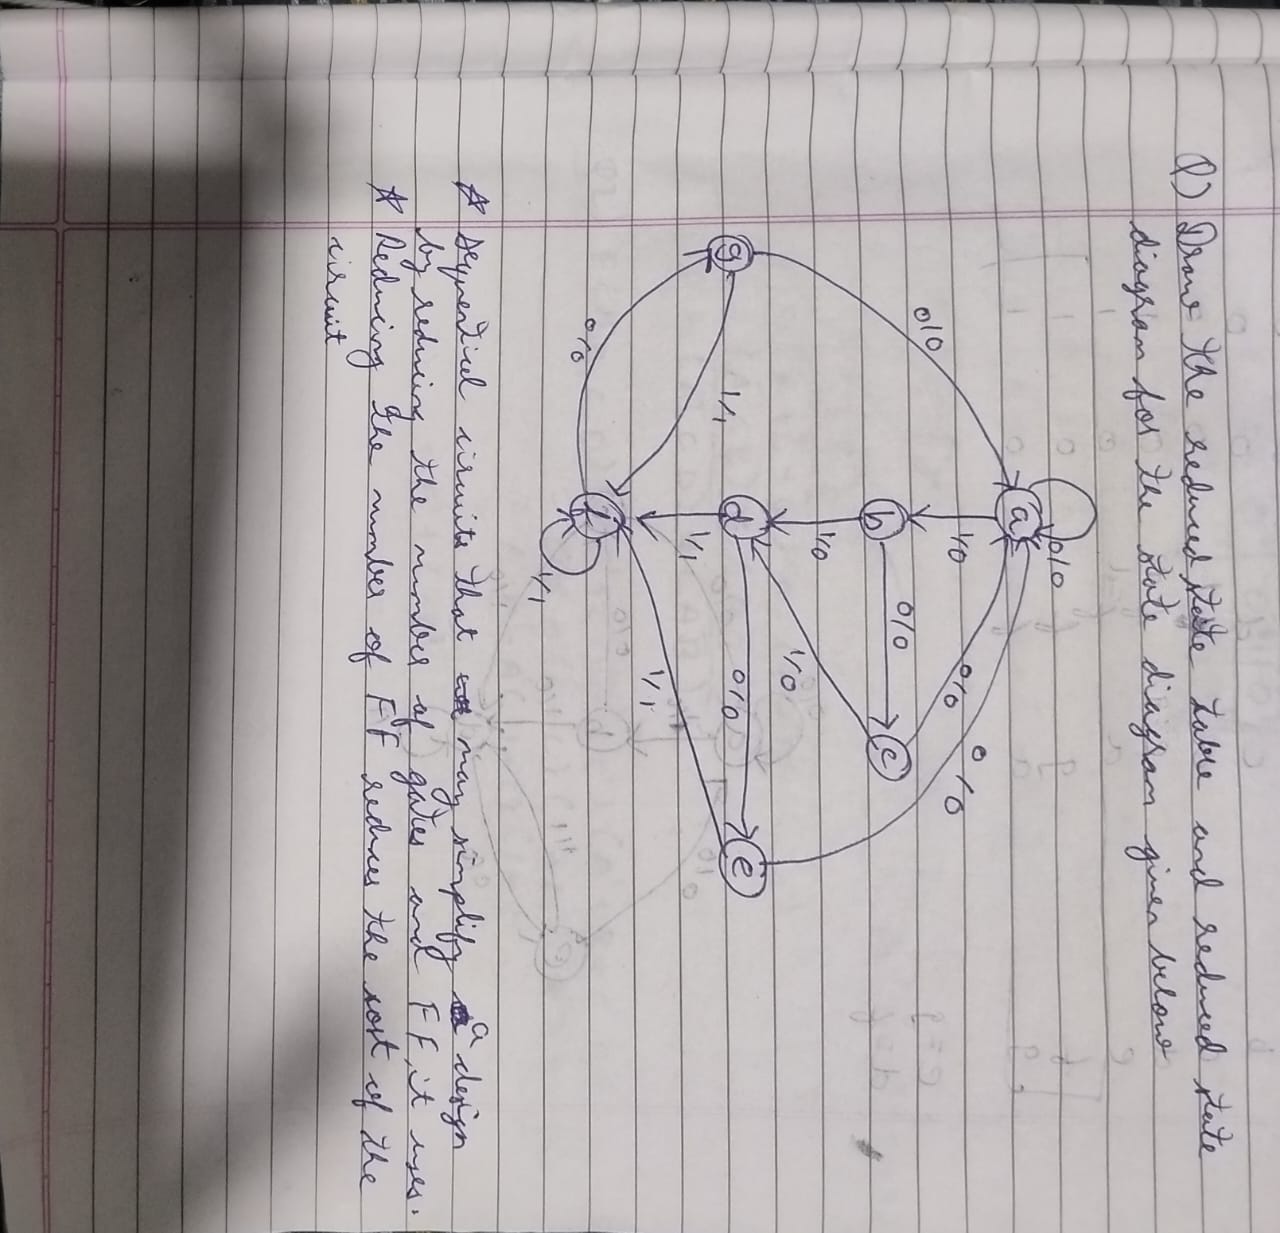 Q) Draw the reduced state table and reduced state
diagram for the state diagram given below
0/0
a
0/0
1/0
0/0
0/0
b
0/0
c
1/0
1/0
g
1/1
d
0/0
e
1/1
1/1
0/0
f
1/1
☆ Sequential circuits that may simplify a design
by reducing the number of gates and FF, it uses.
☆ Reducing the number of FF reduces the cost of the
circuit